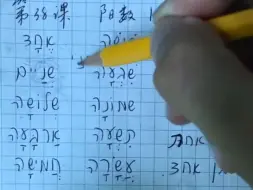 第38课 阳数
אֶחָד
שְׁנַיִים שִׁבְעָה
שְׁלוֹשָׁה שְׁמוֹנָה
אַרְבָּעָה תִּשְׁעָה
חֲמִישָׁה עֲשָׂרָה אחד.